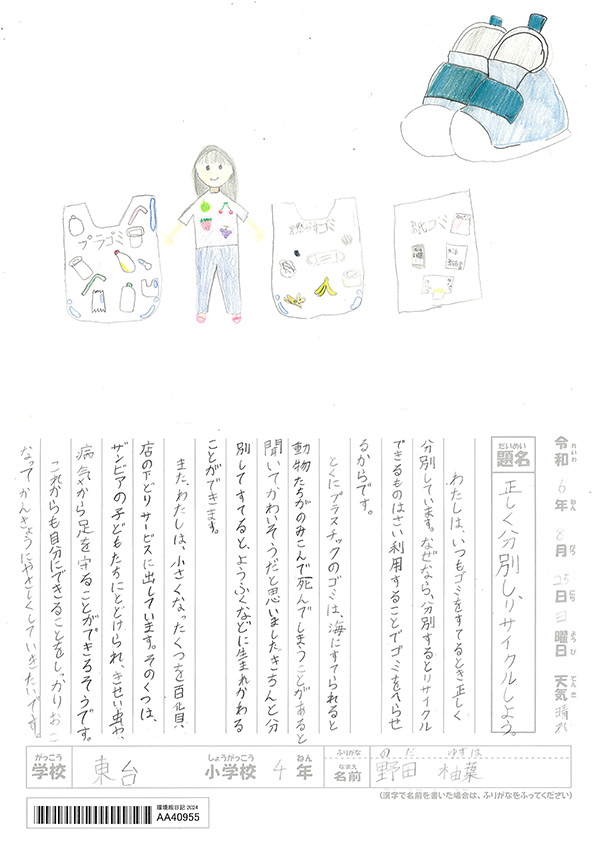 プラゴミ
燃やすゴミ
紙ゴミ
令和6年8月25日日曜日 天気晴れ
れいわ ねん がつ にち ようび てんき
だいめい
題名 正しく分別し、リサイクルしよう。
わたしは、いつもゴミをすてるとき正しく
分別しています。なぜなら、分別するとリサイクル
できるものはさい利用することでゴミをへらせ
るからです。
とくにプラスチックのゴミは、海にすてられると
動物たちがのみこんで死んでしまうことがあると
聞いてかわいそうだと思いました。きちんと分
別してすてると、ようふくなどに生まれかわる
ことができます。
また、わたしは、小さくなったくつを百化貝、
店の下どりサービスに出しています。そのくつは、
ザンビアの子どもたちにとどけられ、きせい虫や、
病気から足を守ることができるそうです。
これからも自分にできることをしっかりおこ
なってかんきょうにやさしくしていきたいです。
がっこう しょうがっこう ねん ふりがな のだ ゆずは
学校 東台 小学校 4年 なまえ 名前 野田 柚葉
(漢字で名前を書いた場合は、ふりがなをふってください)
環境絵日記2024
AA40955